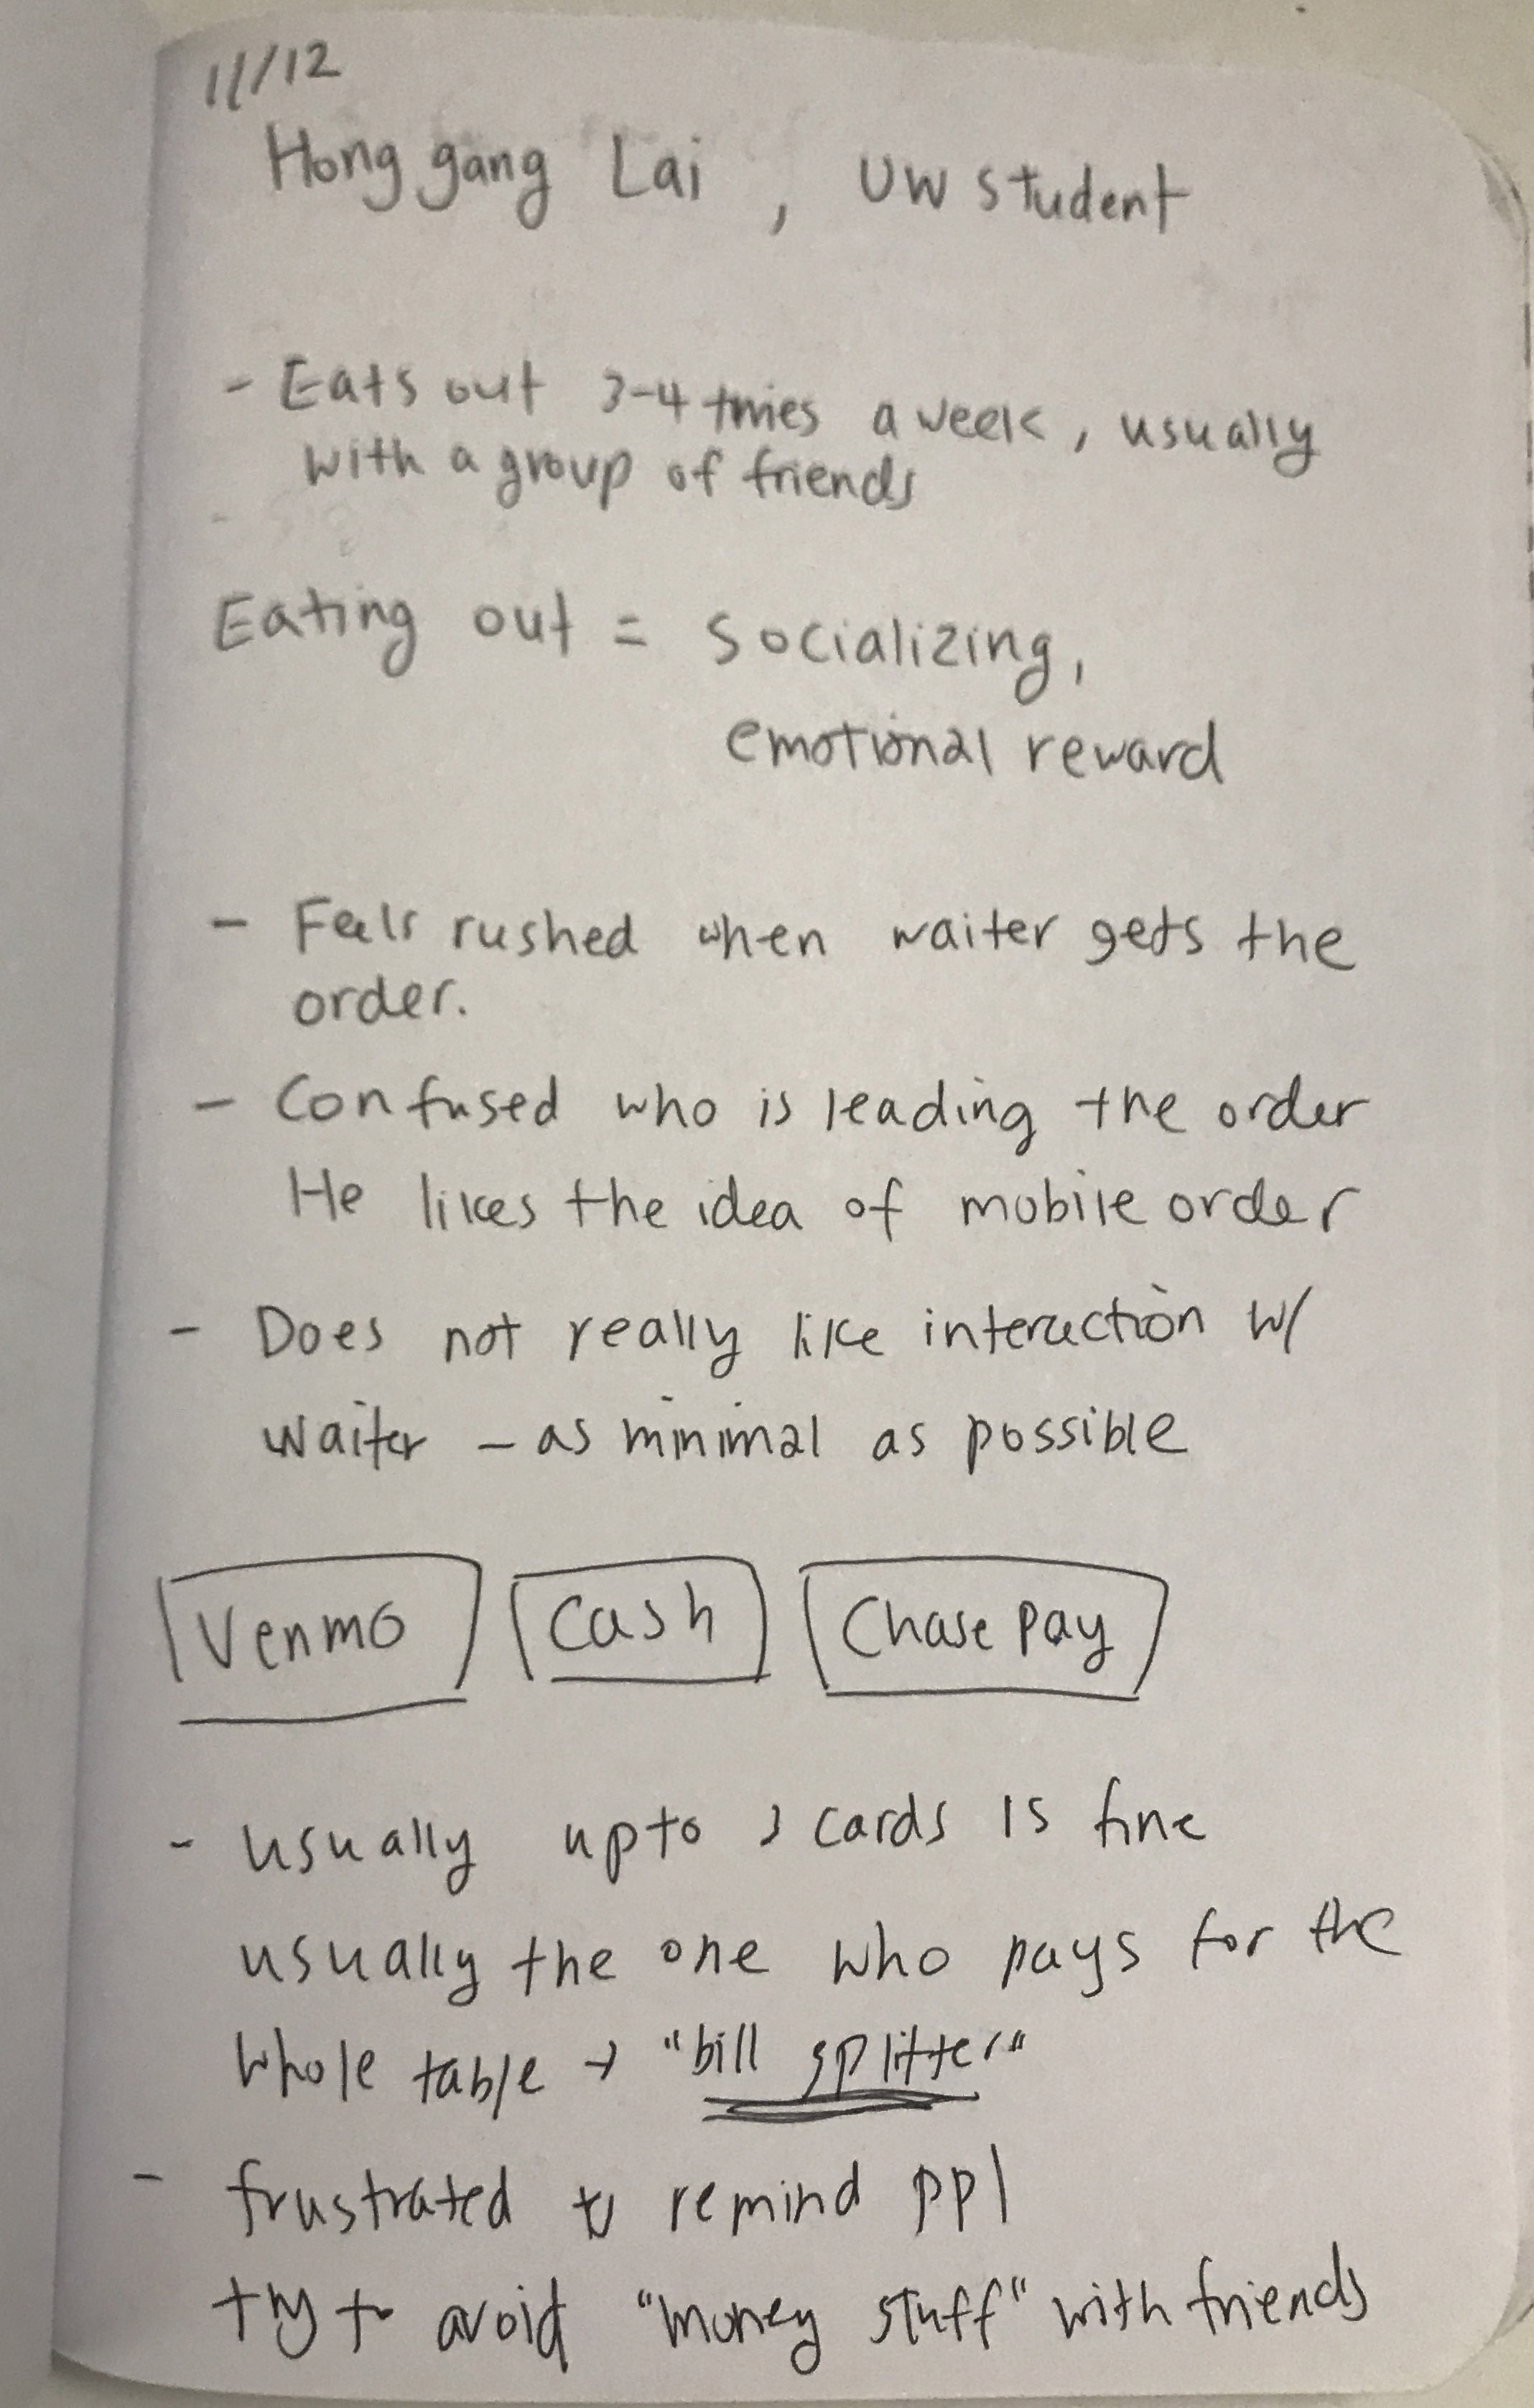 11/12
Hong gang Lai, UW student
- Eats out 3-4 times a week, usually
with a group of friends
Eating out = socializing,
emotional reward
- Feels rushed when waiter gets the
order.
- Confused who is leading the order
He likes the idea of mobile order
- Does not really like interaction w/
waiter - as minimal as possible
Venmo Cash Chase Pay
- usually upto cards is fine
usually the one who pays for the
whole table → "bill splitter"
- frustrated to remind ppl
try to avoid "money stuff" with friends